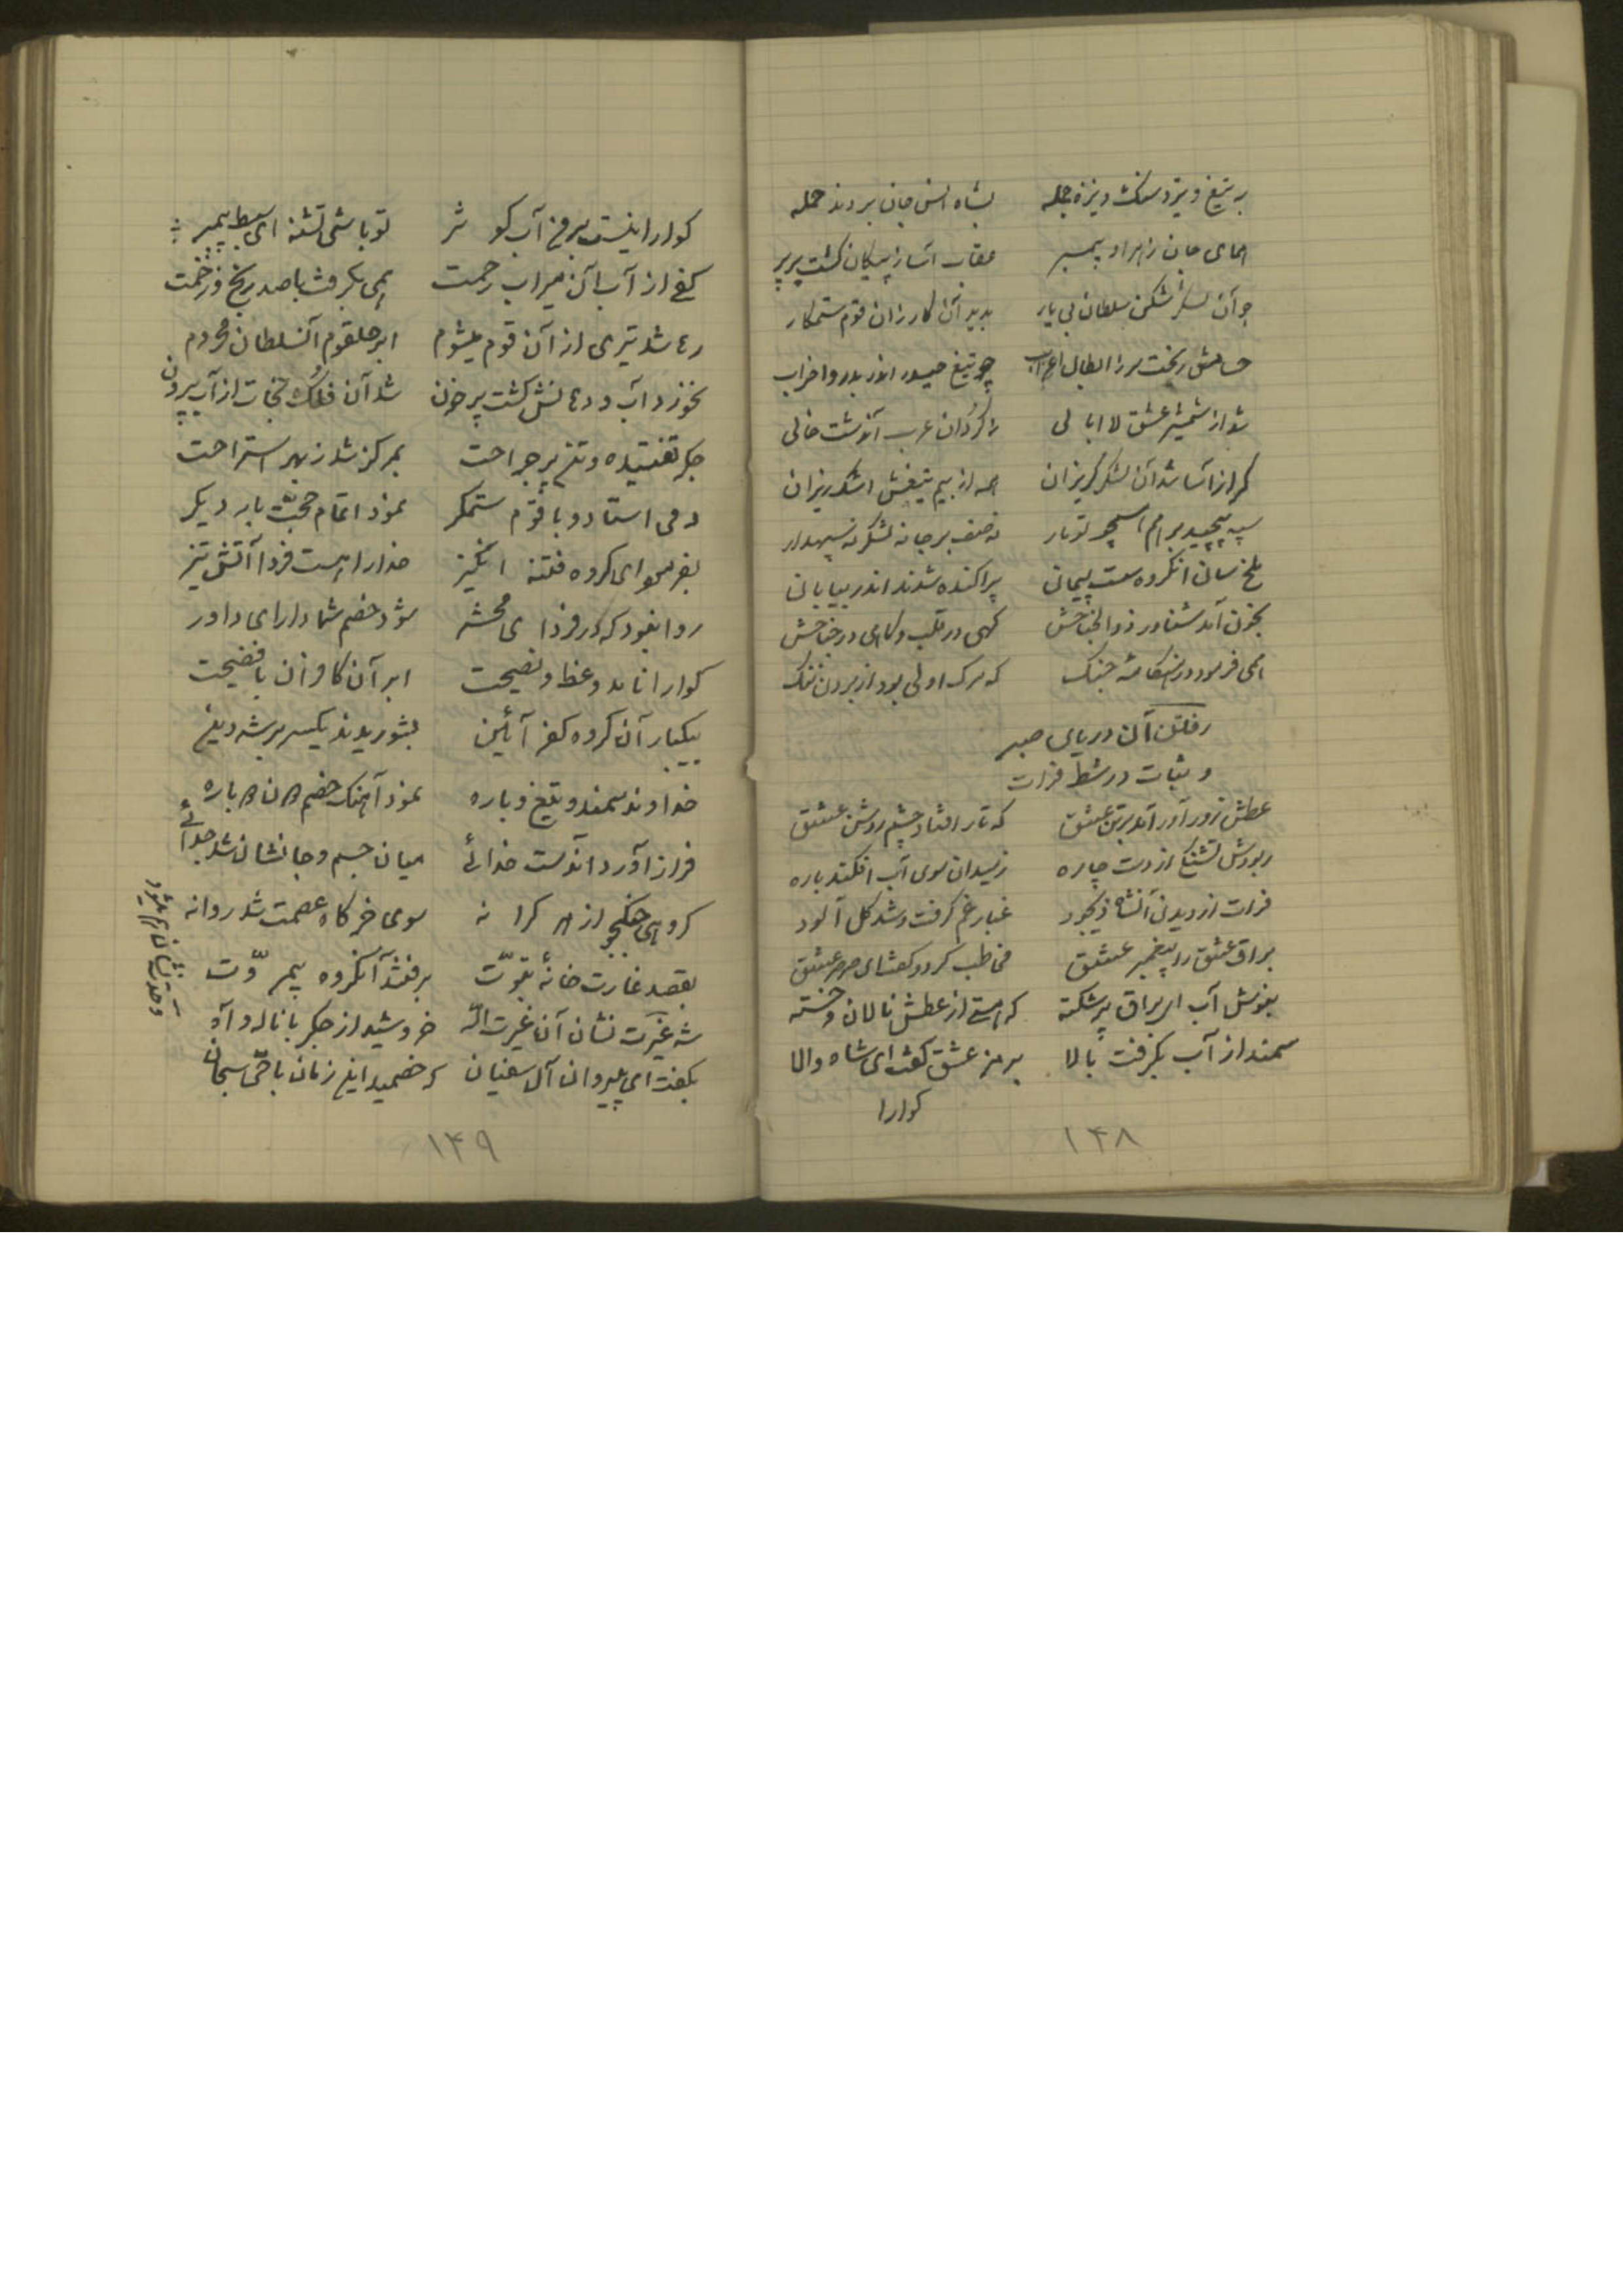 به تیغ و تیر و سنگ و نیزه جمله بشاه انس و جان بردند حمله
همای جان زهرا و پیمبر عقاب آسا ز پیکان گشت پر پر
چو آن لشکر شکن سلطان بی یار بدید آن کارزان قوم ستمکار
حسامش ریخت سر ز ابطال اعراب چو تیغ حیدر اندر بدر و احزاب
شد از شمشیر عشق لا ابالی ز گردان عرب آندشت خالی
گراز آسا شد آن لشکر گریزان همه از بیم تیغش اشک ریزان
سپه پیچید بر هم همچو تومار نه صف بر جا نه لشکر نه سپهدار
ملخ سان آنگروه سست پیمان پراکنده شدند اندر بیابان
بخون آمد شناور ذوالجناحش گهی در قلب و گاهی در جناحش
همی فرمود در هنگامه جنگ که مرگ اولی بود از بردن ننگ
رفتن آن دریای صبر
و ثبات در شط فرات
عطش زور آور آمد بر تن عشق که تار افتاد چشم روشن عشق
ربودش تشنگی از دست چاره ز میدان سوی آب افکند باره
فرات از دیدن آنشاه ذیجود غبار غم گرفت و شد گل آلود
براق عشق را پیغمبر عشق مخاطب کرد و گفت ای صرصر عشق
بنوش آب ای براق پر شکسته که هستی از عطش نالان و خسته
سمند از آب بگرفت بالا برمز عشق گفت ای شاه والا
گوارا
۱۴۸
گوارا نیست بر من آب کوثر تو باشی تشنه ای سبط پیمبر
کفی از آب آن میراب رحمت همی بگرفت با صد رنج و زحمت
رها شد تیری از آن قوم میشوم ابر حلقوم آنسلطان محروم
نخورد آب و دهانش گشت پر خون شد آن فلک نجات از آب بیرون
جگر تفتیده و تن پر جراحت بمرکز شد ز بهر استراحت
دمی استاد و با قوم ستمگر نمود اتمام حجت بار دیگر
بفرمود ای گروه فتنه انگیز خدا را هست فردا آتش تیز
روا نبود که در فردای محشر شود خصم شما دارای داور
گوارا نامد وعظ و نصیحت ابر آن کافران با فضیحت
بیکبار آن گروه کفر آئین بشوریدند یکسر بر شه دین
خداوند سمند و تیغ و باره نمود آهنگ خصم
فراز آورد آندست خدائی میان جسم و جانشان شد جدائی
گروهی جنگجو از هر کرانه سوی خرگاه عصمت شد روانه
بقصد غارت خانهٔ نبوّت برفتند آنگروه بیمروّت
شه غیرت نشان آن غیرت الله خروشید از جگر با ناله و آه
بگفت ای پیروان آل سفیان که خصمید این زمان با حیّ سبحان
۱۴۹